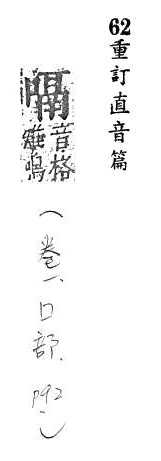 62重訂直音篇
嗝
音格
雉鳴
（卷一、口部、P92）